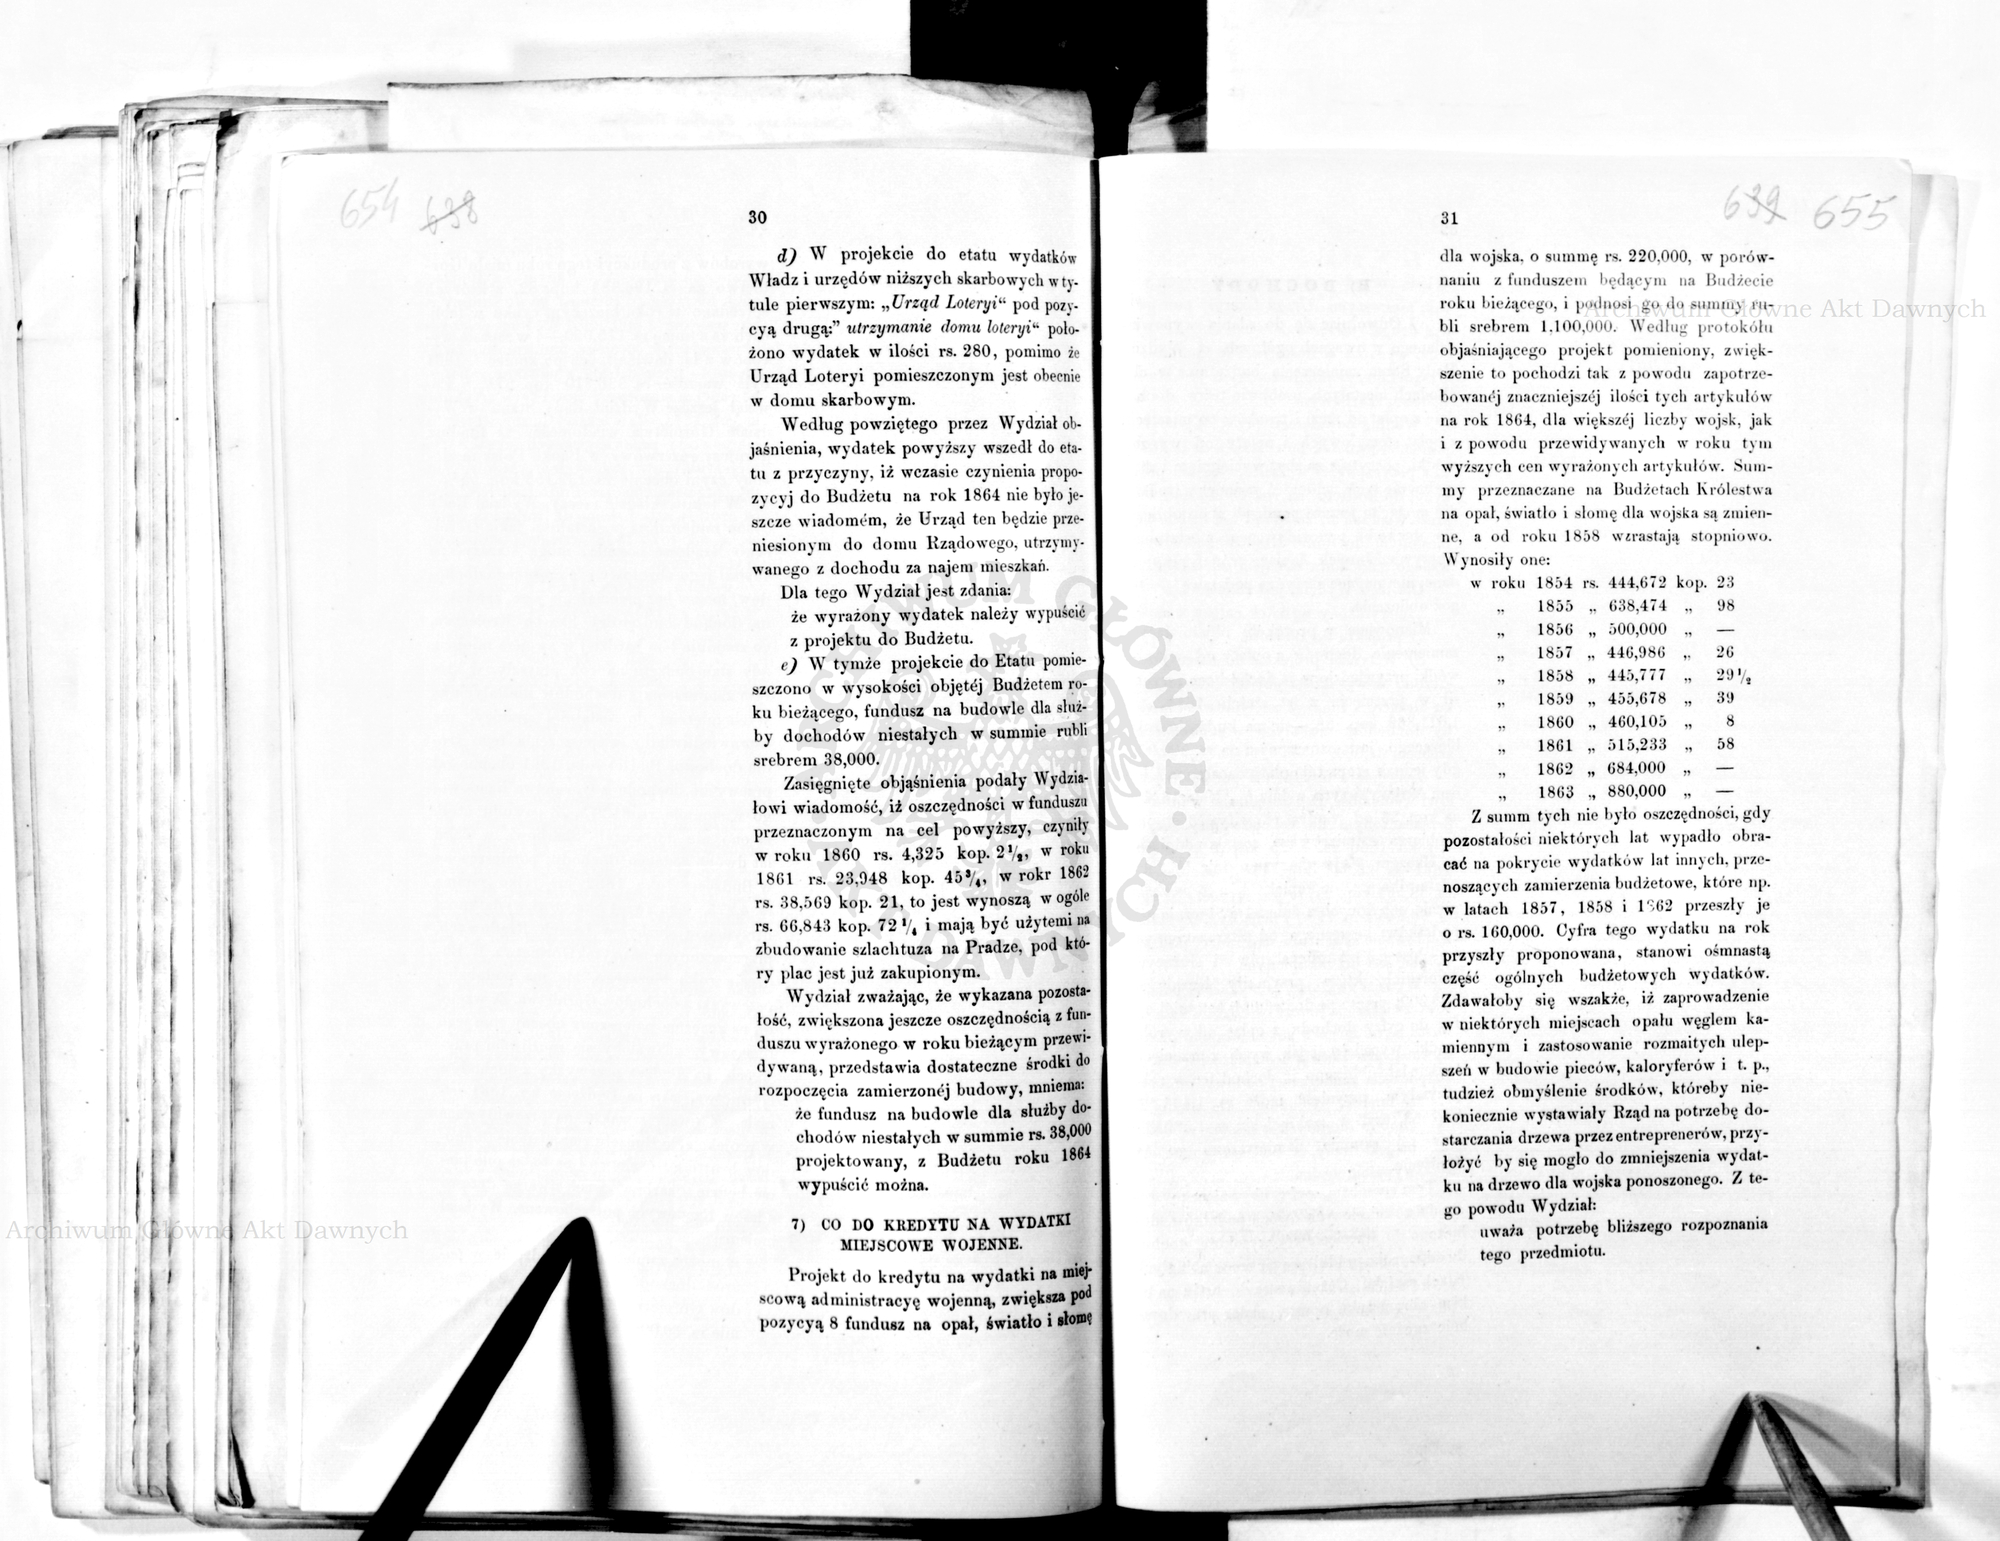 654 638
30
d) W projekcie do etatu wydatków
Władz i urzędów niższych skarbowych w ty-
tule pierwszym: „Urząd Loteryi“ pod pozy-
cyą drugą:” utrzymanie domu loteryi“ poło-
żono wydatek w ilości rs. 280, pomimo że
Urząd Loteryi pomieszczonym jest obecnie
w domu skarbowym.
Według powziętego przez Wydział ob-
jaśnienia, wydatek powyższy wszedł do eta-
tu z przyczyny, iż wczasie czynienia propo-
zycyj do Budżetu na rok 1864 nie było je-
szcze wiadomém, że Urząd ten będzie prze-
niesionym do domu Rządowego, utrzymy-
wanego z dochodu za najem mieszkań.
Dla tego Wydział jest zdania:
że wyrażony wydatek należy wypuścić
z projektu do Budżetu.
e) W tymże projekcie do Etatu pomie-
szczono w wysokości objętéj Budżetem ro-
ku bieżącego, fundusz na budowle dla służ-
by dochodów niestałych w summie rubli
srebrem 38,000.
Zasięgnięte objąśnienia podały Wydzia-
łowi wiadomość, iż oszczędności w funduszu
przeznaczonym na cel powyższy, czyniły
w roku 1860 rs. 4,325 kop. 2½, w roku
1861 rs. 23,948 kop. 45¾, w rokr 1862
rs. 38,569 kop. 21, to jest wynoszą w ogóle
rs. 66,843 kop. 72¼ i mają być użytemi na
zbudowanie szlachtuza na Pradze, pod któ-
ry plac jest już zakupionym.
Wydział zważając, że wykazana pozosta-
łość, zwiększona jeszcze oszczędnością z fun-
duszu wyrażonego w roku bieżącym przewi-
dywaną, przedstawia dostateczne środki do
rozpoczęcia zamierzonéj budowy, mniema:
że fundusz na budowle dla służby do-
chodów niestałych w summie rs. 38,000
projektowany, z Budżetu roku 1864
wypuścić można.
7) CO DO KREDYTU NA WYDATKI
MIEJSCOWE WOJENNE.
Projekt do kredytu na wydatki na miej-
scową administracyę wojenną, zwiększa pod
pozycyą 8 fundusz na opał, światło i słomę
639 655
31
dla wojska, o summę rs. 220,000, w porów-
naniu z funduszem będącym na Budżecie
roku bieżącego, i podnosi go do summy ru-
bli srebrem 1,100,000. Według protokółu
objaśniającego projekt pomieniony, zwięk-
szenie to pochodzi tak z powodu zapotrze-
bowanéj znaczniejszéj ilości tych artykułów
na rok 1864, dla większéj liczby wojsk, jak
i z powodu przewidywanych w roku tym
wyższych cen wyrażonych artykułów. Sum-
my przeznaczane na Budżetach Królestwa
na opał, światło i słomę dla wojska są zmien-
ne, a od roku 1858 wzrastają stopniowo.
Wynosiły one:
w roku 1854 rs. 444,672 kop. 23
„ 1855 „ 638,474 „ 98
„ 1856 „ 500,000 „ —
„ 1857 „ 446,986 „ 26
„ 1858 „ 445,777 „ 29½
„ 1859 „ 455,678 „ 39
„ 1860 „ 460,105 „ 8
„ 1861 „ 515,233 „ 58
„ 1862 „ 684,000 „ —
„ 1863 „ 880,000 „ —
Z summ tych nie było oszczędności, gdy
pozostałości niektórych lat wypadło obra-
cać na pokrycie wydatków lat innych, prze-
noszących zamierzenia budżetowe, które np.
w latach 1857, 1858 i 1862 przeszły je
o rs. 160,000. Cyfra tego wydatku na rok
przyszły proponowana, stanowi ośmnastą
część ogólnych budżetowych wydatków.
Zdawałoby się wszakże, iż zaprowadzenie
w niektórych miejscach opału węglem ka-
miennym i zastosowanie rozmaitych ulep-
szeń w budowie pieców, kaloryferów i t. p.,
tudzież obmyślenie środków, któreby nie-
koniecznie wystawiały Rząd na potrzebę do-
starczania drzewa przez entreprenerów, przy-
łożyć by się mogło do zmniejszenia wydat-
ku na drzewo dla wojska ponoszonego. Z te-
go powodu Wydział:
uważa potrzebę bliższego rozpoznania
tego przedmiotu.
Archiwum Główne Akt Dawnych
Archiwum Główne Akt Dawnych
ARCHIWUM GŁÓWNE AKT DAWNYCH